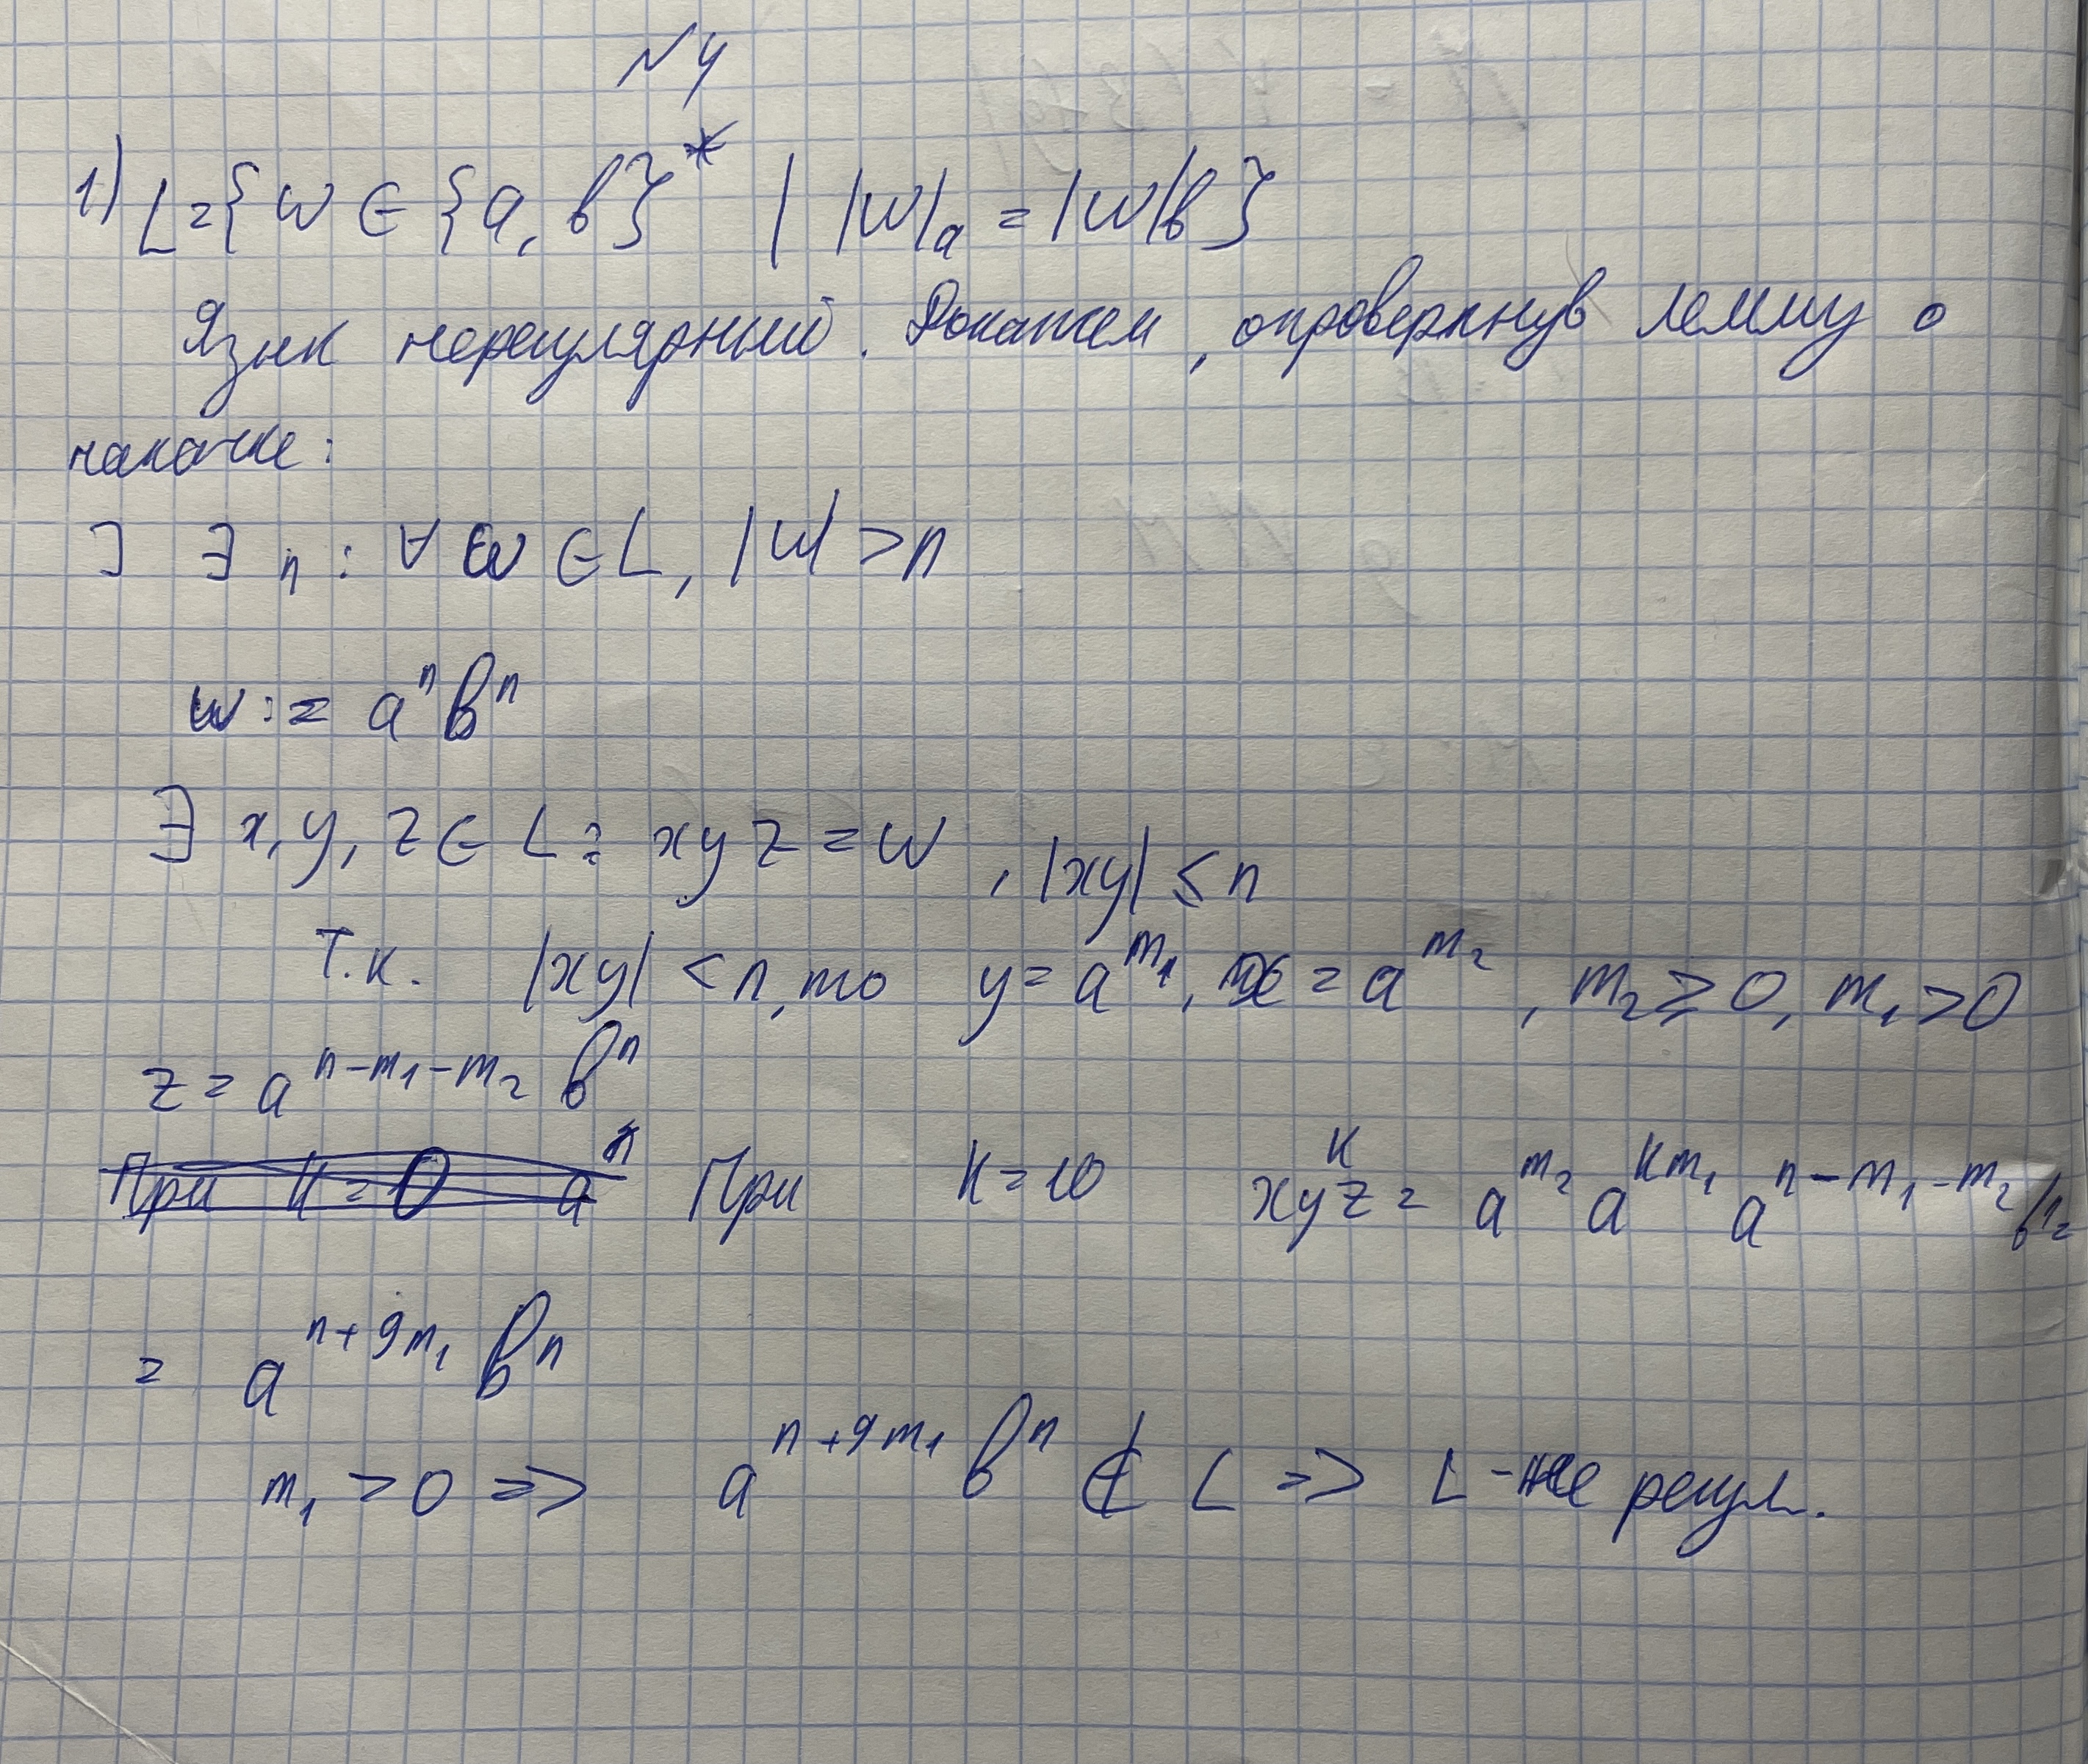 N4
1) L={w ∈ {a, b}* | |w|ₐ = |w|b}
Язык нерегулярный. Докажем, опровергнув лемму о
накачке:
] ∃ n : ∀ w ∈ L, |w| > n
w := aⁿbⁿ
∃ x, y, z ∈ L : xyz = w, |xy| ≤ n
Т.к. |xy| < n, то y = a^m₁, x = a^m₂, m₂ ≥ 0, m₁ > 0
z = a^(n-m₁-m₂) bⁿ
При k=0 aⁿ При k=10 xy^kz = a^m₂ a^km₁ a^(n-m₁-m₂) bⁿ =
= a^(n+9m₁) bⁿ
m₁ > 0 => a^(n+9m₁) bⁿ ∉ L => L - не регул.